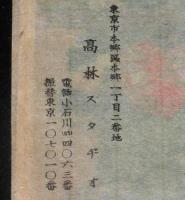 東京市本郷区本郷一丁目二番地
高林スタヂオ
電話小石川(85)四〇六三番
振替東京一〇七〇一〇番